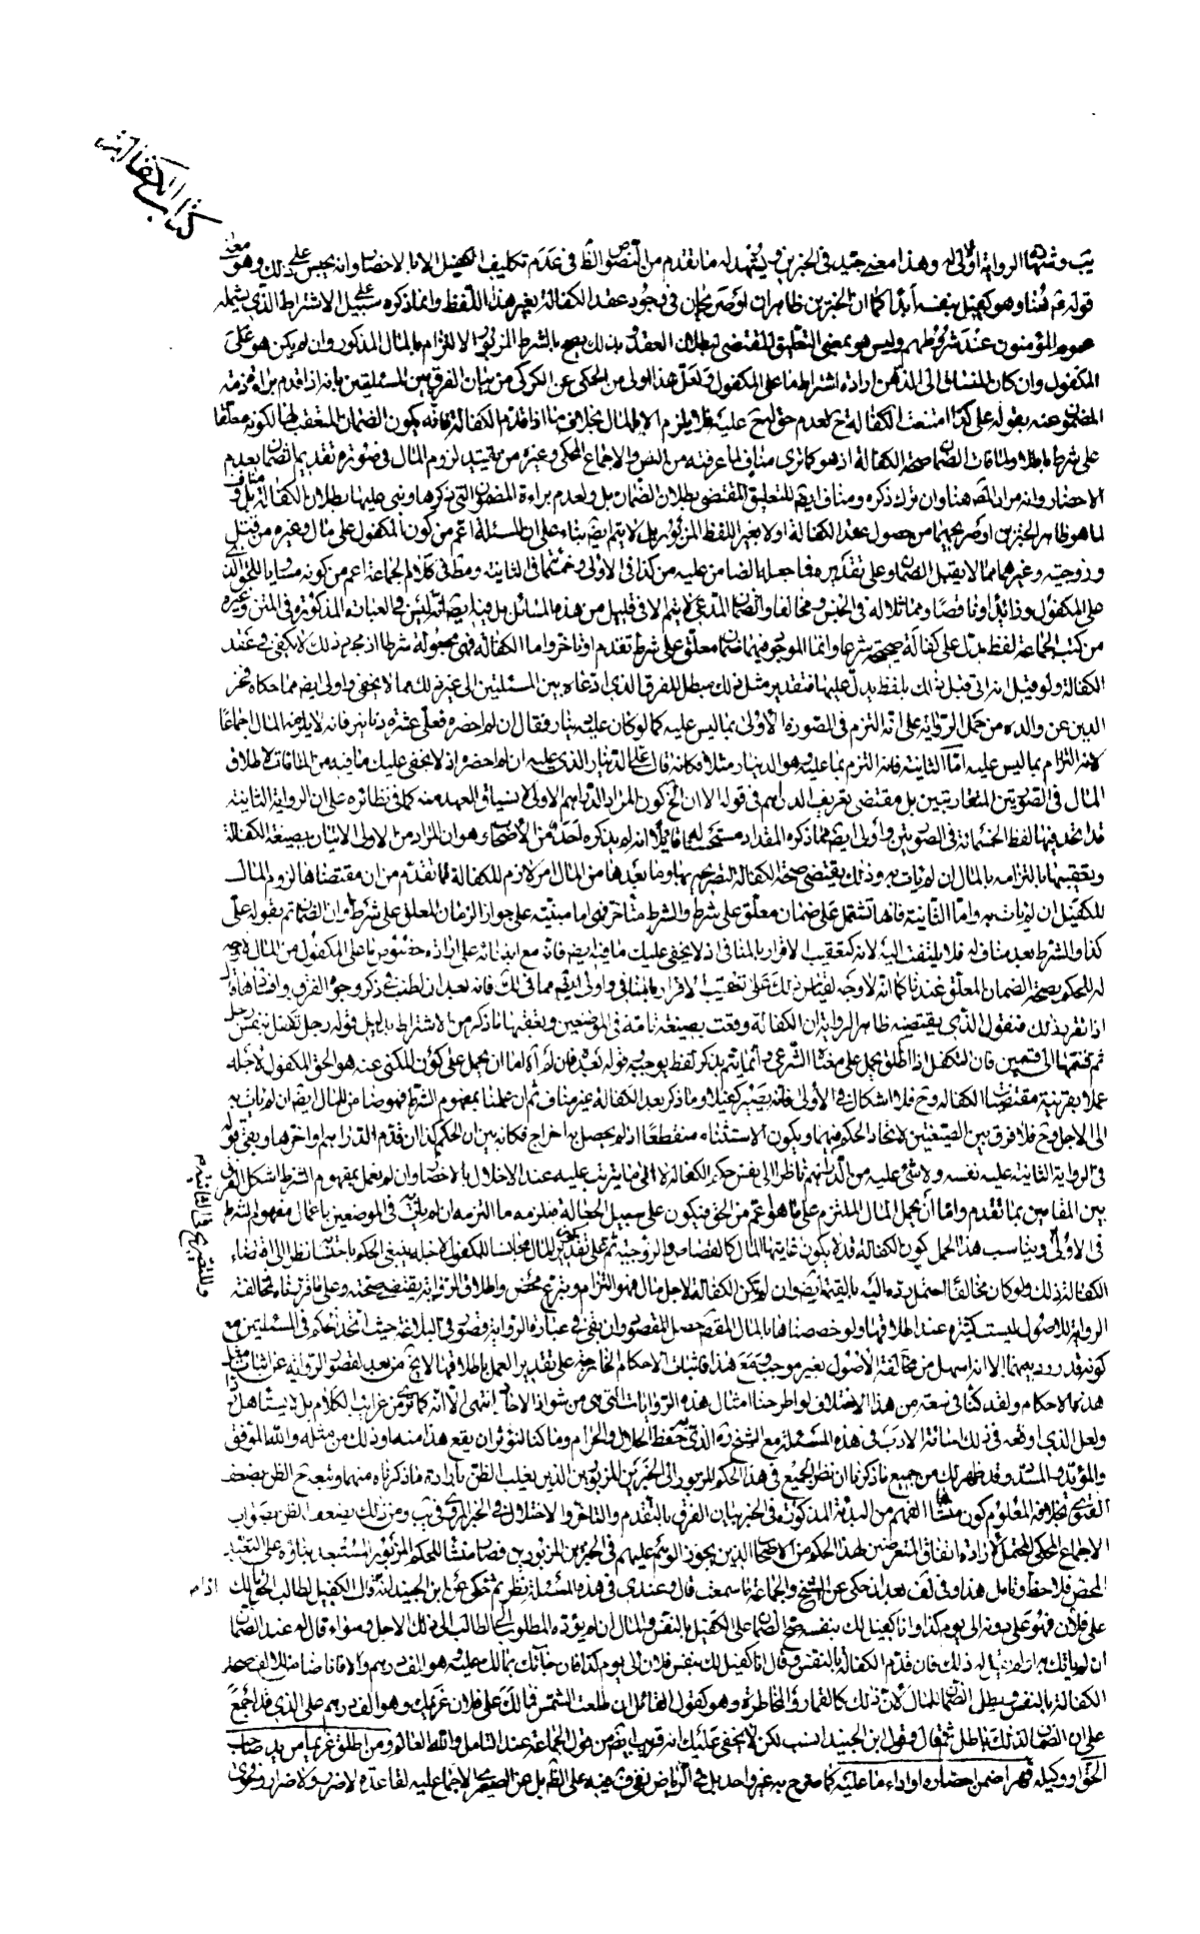 كتاب الكفالة
الرواية الاولى له وهذا معنى جيد في الخبرين ويشهد له ما تقدم من النصوص الظ في عدم تكليف الكفيل الا بالاحضار وانه يحبس على ذلك وهو معنى
قوله ثم هنا وهو كفيل بنفسه ابدا كما ان الخبرين ظاهران او صريحان في وجود عقد الكفالة بغير هذا اللفظ وانما ذكره على سبيل الاشتراط الذي يشمله
عموم المؤمنون عند شروطهم وليس هو بمعنى التعليق المقتضي لبطلان العقد وبذلك يصح بالشرط المزبور الالتزام بالمال المذكور وان لم يكن هو على
المكفول وان كان المنساق الى الذهن ارادة اشتراط ما على المكفول ولعل هذا اولى من المحكي عن الكركي من بيان الفرق بين المسئلتين بانه اذا قدم براءة ذمة
المضمون عنه بقوله على كذا امتنعت الكفالة ح لعدم حق له ح عليه فلا يلزم الا المال بخلاف ما اذا قدم الكفالة فانه يكون الضمان المتعقب لها لكونه معلقا
على شرط باطلا ولمنافاة الضمان صحة الكفالة اذ هو كما ترى مناف لما عرفته من النص والاجماع المحكي وغيره من تقييد لزوم المال في صورة تقديم الضمان بعدم
الاحضار وانه مراد المصنف هنا وان ترك ذكره ومناف ايضا للتعليق المقتضي بطلان الضمان بل ولعدم براءة المضمون التي ذكرها وبنى عليها بطلان الكفالة بل ومناف
لما هو ظاهر الخبرين او صريحهما من حصول عقد الكفالة اولا بغير اللفظ المزبور بل لا يتم ايضا بناء على ان المسئلة اعم من كون المكفول على مال وغيره من قتل
وزوجية وغيرهما مما لا يقبل الضمان وعلى تقديره فاجعل بالضامن عليه من كذا في الاولى وخمسمائة في الثانية ومط في كلام الجماعة اعم من كونه مساويا للحق الذي
على المكفول وزائدا وناقصا ومماثلا له في الجنس ومخالفا والضمان المدعى لا يتم الا في قليل من هذه المسائل بل فيه ايضا انه ليس في العبارة المذكورة في المتن وغيره
من كتب الجماعة لفظ يدل على كفالة صحيحة شرعا وانما الموجود فيهما ضمان معلق على شرط تقدم او تاخر واما الكفالة فهي مجعولة شرطا ومجرد ذلك لا يكفي في عقد
الكفالة ولو قيل انه اتى قبل ذلك بلفظ يدل عليها فتقدير مثل ذلك مبطل للفرق الذي ادعاه بين المسئلتين الى غير ذلك مما لا يخفى واولى ايضا مما حكاه فخر
الدين عن والده من حمل الرواية على انه التزم في الصورة الاولى بما ليس عليه كما لو كان عليه دينار فقال ان لم احضره فعلي عشرة دنانير فانه لا يلزمه المال اجماعا
لانه التزام بما ليس عليه اما الثانية فانه التزم بما عليه وهو الدينار مثلا فكانه قال على الدينار الذي عليه ان لم احضره اذ لا يخفى عليك ما فيه من المنافات لاطلاق
المال في الصورتين المتحاديتين بل مقتضى تعريف الدراهم في قوله الا ان الخ كون المراد الدراهم الاولى لانسياق العهد منه كما في نظائره على ان الرواية الثانية
قد اتحد فيها لفظ الخمسمائة في الصورتين واولى ايضا مما ذكره المقداد مستحسنا له قائلا انه لم يذكره احد من الاصحاب وهو ان المراد من الاولى الاتيان بصيغة الكفالة
وتعقيبها بالتزامه بالمال ان لم يات به وذلك يقتضي صحة الكفالة لتصريحهم بها وما بعدها من المال امر لازم للكفالة لما تقدم من ان مقتضاها لزوم المال
للكفيل ان لم يات به واما الثانية فانها تشتمل على ضمان معلق على شرط والشرط متاخر فهي اما مبنية على جواز الضمان المعلق على شرط وان الضمان تم بقوله على
كذا والشرط بعد مناف له فلا يلتفت اليه لانه كتعقيب الاقرار بالمنافي اذ لا يخفى عليك ما فيه ايضا فانه مع ابتنائه على ارادة خصوص ما على المكفول من المال لا وجه
له للحكم بصحة الضمان المعلق عندنا كما انه لا وجه لقياس ذلك على تعقيب الاقرار بالمنافي واولى ايضا مما في لك فانه بعد ان اطنب في ذكر وجوه الفرق وافسادها قال
اذا تقرر ذلك فنقول الذي يقتضيه ظاهر الرواية ان الكفالة وقعت بصيغة تامة في الموضعين وتعقبها ما ذكر من الاشتراط بدليل قوله رجل تكفل بنفس رجل
ثم قسمتها الى قسمين فان التكفل اذا اطلق يحمل على معناه الشرعي وانما يتم بذكر لفظ يوجبه وقوله بعده فان لم اه اما ان يحمل على كون المكنى عنه هو الحق المكفول لاجله
عملا بقرينة مقتضى الكفالة وح فلا اشكال في الاولى فانه يصير كفيلا وما ذكر بعد الكفالة غير مناف ثم ان عملنا بمفهوم الشرط فهو ضامن للمال ايضا ان لم يات به
الى الاجل وح فلا فرق بين الصيغتين لاتحاد الحكم فيهما ويكون الاستثناء منقطعا اذ لم يحصل به اخراج فكانه بين ان الحكم كذا ان قدم الدراهم واخرها ويبقى قوله
في الرواية الثانية عليه نفسه ولا شيء عليه من الدراهم ناظرا الى نفس حكم الكفالة لا الى ما يترتب عليه عند الاخلال بالاحضار وان لم نعمل بمفهوم الشرط اشكل الفرق
بين المقامين بما تقدم واما ان يحمل المال الملتزم على ما هو اعم من الحق فيكون على سبيل الجعالة فيلزمه ما التزمه ان لم يات به في الموضعين باعمال مفهوم الشرط
في الاولى ويناسب هذا الحمل كون الكفالة قد لا يكون غايتها المال كالقصاص والزوجية ثم على تقدير كون المال مجانسا للمكفول لاجله ينبغي الحكم باحتسابه نظرا الى اقتضاء
الكفالة ذلك ولو كان مخالفا احتمل رده اليه بالقيمة ايضا وان لم يكن الكفالة لاجل مال فهو التزام وتبرع محض واطلاق الرواية يقتضي صحته وعلى ما قررناه فمخالفة
الرواية للاصول ليست كثيرة عند اطلاقها ولو خصصناها بالمال المقصود حصل المقصود وان بقي في عبارة الرواية قصور في البلاغة حيث اتحد الحكم في المسئلتين مع
كونه قد ردد بينهما الا انه اسهل من مخالفة الاصول بغير موجب ومع هذا فاثبات الاحكام الخارجة على تقدير العمل باطلاقها لا يخ من بعد لقصور الرواية عن اثبات مثل
هذه الاحكام ولقد كنا في سعة من هذا الاختلاف لو اطرحنا امثال هذه الروايات التي هي من شواذ الاحاد انتهى الا انه كما ترى من غرائب الكلام بل لا يستاهل ردا
ولعل الذي اوقعه في ذلك اسائة الادب في هذه المسئلة مع الشيخ ره الذي به حفظ الحلال والحرام وما كنا لنؤثر ان يقع هذا منه وذلك من مثله والله الموفق
والمؤيد والمسدد وقد ظهر لك من جميع ما ذكرنا ان نظر الجميع في هذا الحكم المزبور الى الخبرين المزبورين الذين يغلب الظن بارادة ما ذكرناه منهما ومعه ح الظن يضعف
الفتوى بخلافه المعلوم كون منشاها الفهم من البدئة المذكورة في الخبر بيان الفرق بالتقدم والتاخر والاختلال في الخبر المروي في يب ومن ذلك يضعف الظن بصواب
الاجماع المحكي المحتمل لارادة اتفاق المتعرضين لهذا الحكم من الاصحاب الذين يجوز الوهم عليهم في الخبرين المزبورين فصار منشا للحكم المزبور المستبعد بناؤه على التعبد
المحض فلاحظ وتامل هذا وفي لف بعد ان حكى عن الشيخ والجماعة ما سمعت قال وعندي في هذه المسئلة نظر ثم حكى عن ابن الجنيد انه قال الكفيل لطالب الحق مالك
على فلان فهو علي دونه الى يوم كذا وانا كفيل لك بنفسه صح الضمان على الكفيل بالنفس والمال ان لم يؤده المطلوب الى الطالب الى ذلك الاجل وسواء قال له عند الضمان
ان لم ياتك به او لم يقل له ذلك فان قدم الكفالة بالنفس وقال انا كفيل لك بنفس فلان الى يوم كذا فان جاءك بمالك عليه وهو الف درهم والا فانا ضامن للالف صحت
الكفالة بالنفس وبطل الضمان للمال لان ذلك كالقمار والمخاطرة وهو كقول القائل ان طلعت الشمس فمالك على فلان غريمك وهو الف درهم علي الذي قد اجمع
على ان الضمان لذلك باطل ثم قال وقول ابن الجنيد انسب لكن لا يخفى عليك انه قريب ايضا من قول الجماعة عند التامل والله العالم ومن اطلق غريما من يد صاحب
الحق او وكيله قهرا ضمن احضاره او اداء ما عليه كما صرح به غير واحد بل في الرياض نفي وجدان الخلاف فيه على الظ بل عن الصيمري الاجماع عليه لقاعدة لا ضرر ولا ضرار وفحوى